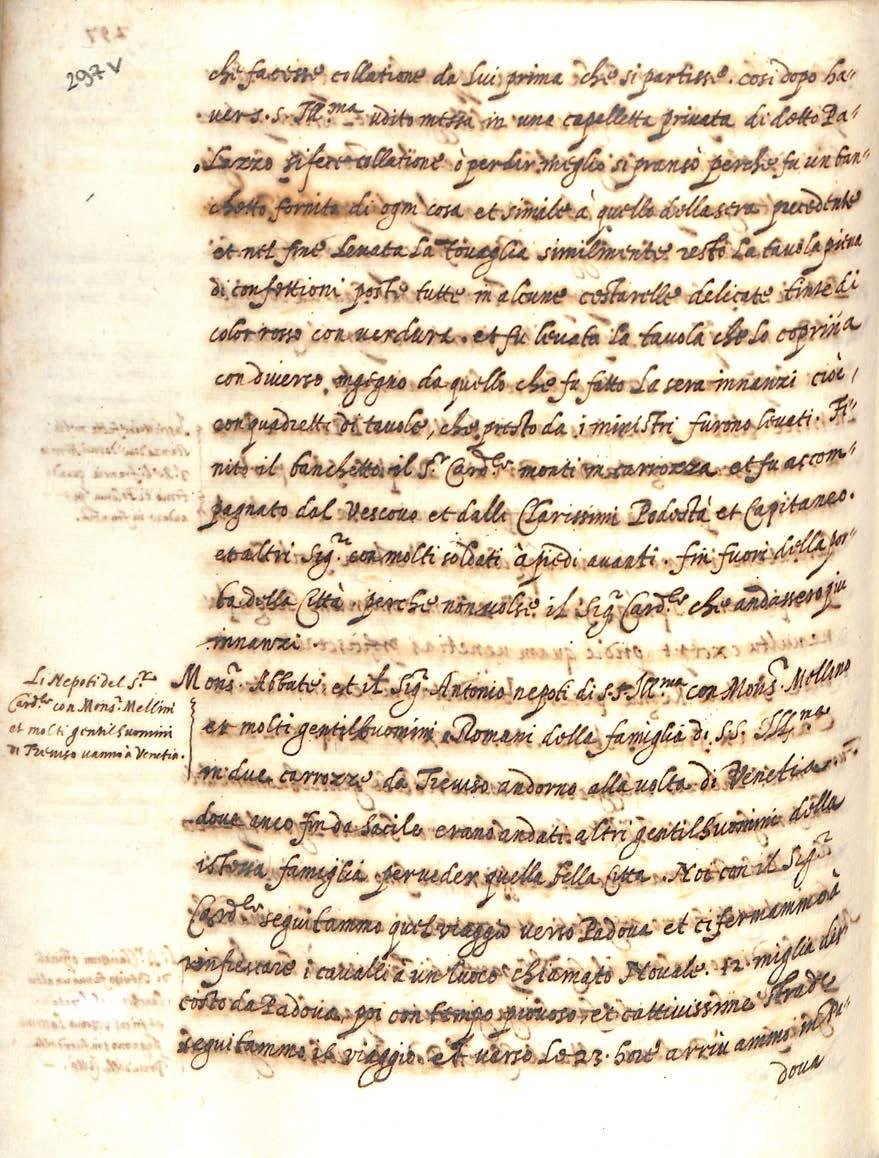 297 V
che facesse collatione da lui prima che si partisse. così dopo ha„
ver s. s. Ill.ma udito messa in una capelletta privata di detto Pa„
lazzo si fece collatione ò per dir meglio si pransò perche fu un ban„
chetto fornito di ogni cosa et simile à quello della sera precedente
et nel fine levata la tovaglia similmente restò la tavola piena
di confettioni poste tutte in alcune cestarelle delicate tinte di
color rosso con verdura. et fu levata la tavola che lo copriva
con diverso ingegno da quello che fu fatto la sera innanzi cioè,
con quadretti di tavole, che presto da i ministri furono levati. Fi„
nito il banchetto il S.r Card.le montò in carrozza et fu accom„
pagnato dal Vescovo et dalli Clarissimi Podestà et Capitaneo.
et altri Sig.ri con molti soldati à piedi avanti. fin fuori della por„
ta della Città perche non volse il Sig.r Card.le che andassero piu
innanzi.
Li Nepoti del S.r
Card.le con Mons.r Mellini
et molti gentilhuomini
di Treviso vanno à Venetia.
Mons.r Abbate, et il Sig.r Antonio nepoti di s. s. Ill.ma con Mons.r Mellino
et molti gentilhuomini Romani della famiglia di s.s. Ill.ma
in due carrozze da Treviso andorno alla volta di Venetia
dove anco fin da Sacile erano andati altri gentilhuomini della
istessa famiglia per veder quella bella Citta. Noi con il Sig.r
Card.le seguitammo quel viaggio verso Padova et ci fermammo à
rinfrescare i cavalli à un luoco chiamato Novale. 12. miglia dis„
costo da Padova, poi con tempo piovoso, et cattivissime strade
seguitammo il viaggio et verso le 23. hore arrivammo in Pa„
dova